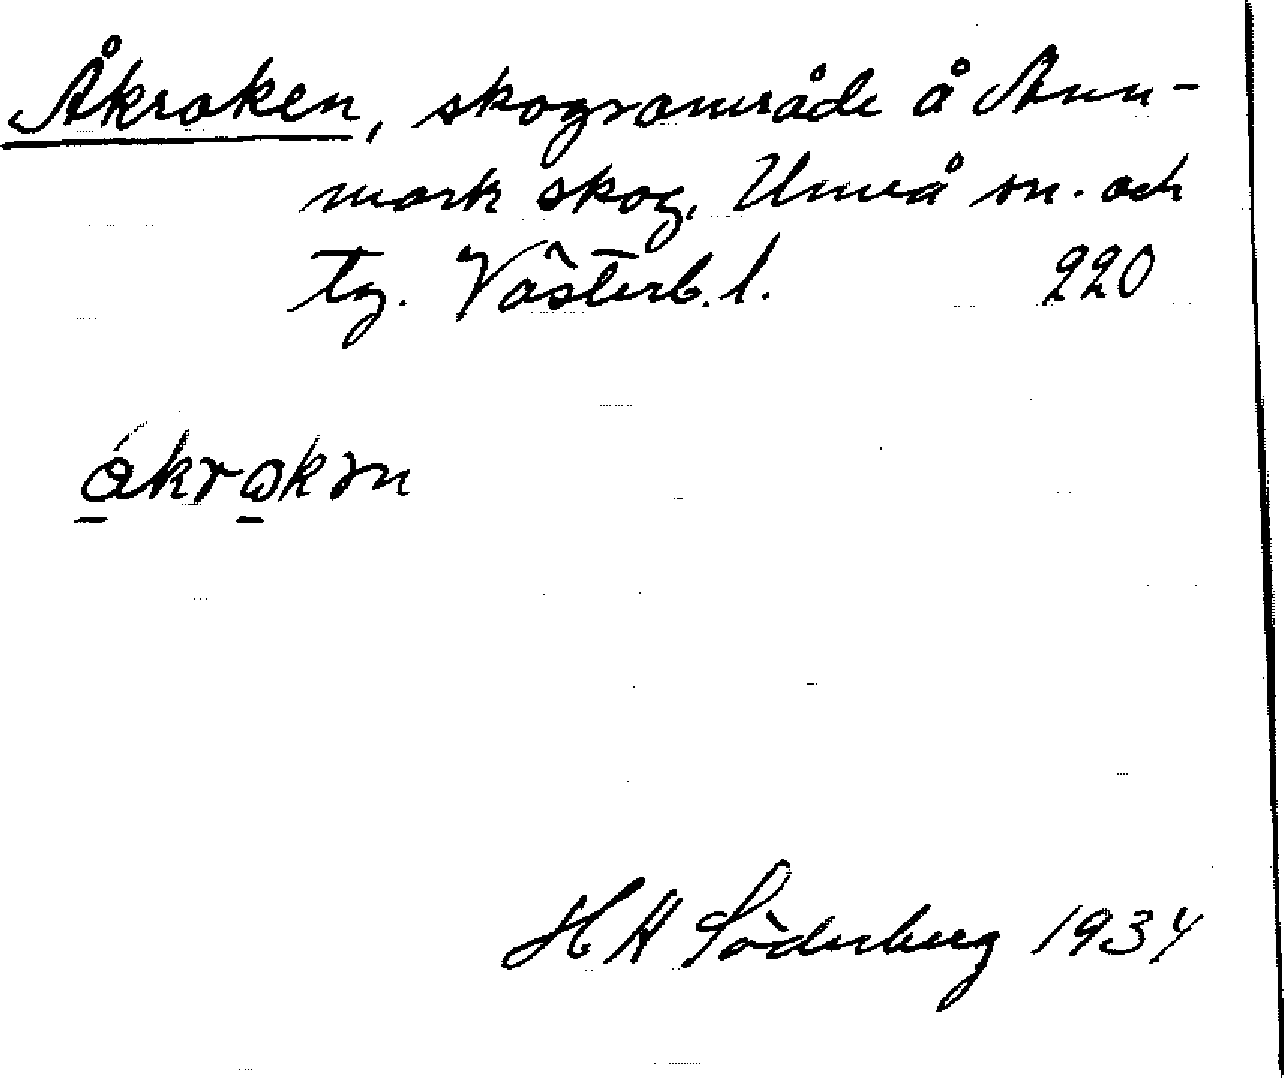 Åkroken, skogsområde å Anu-
mark skog, Umeå sn. och
tg. Västerb. l. 220
H A Söderberg 1934